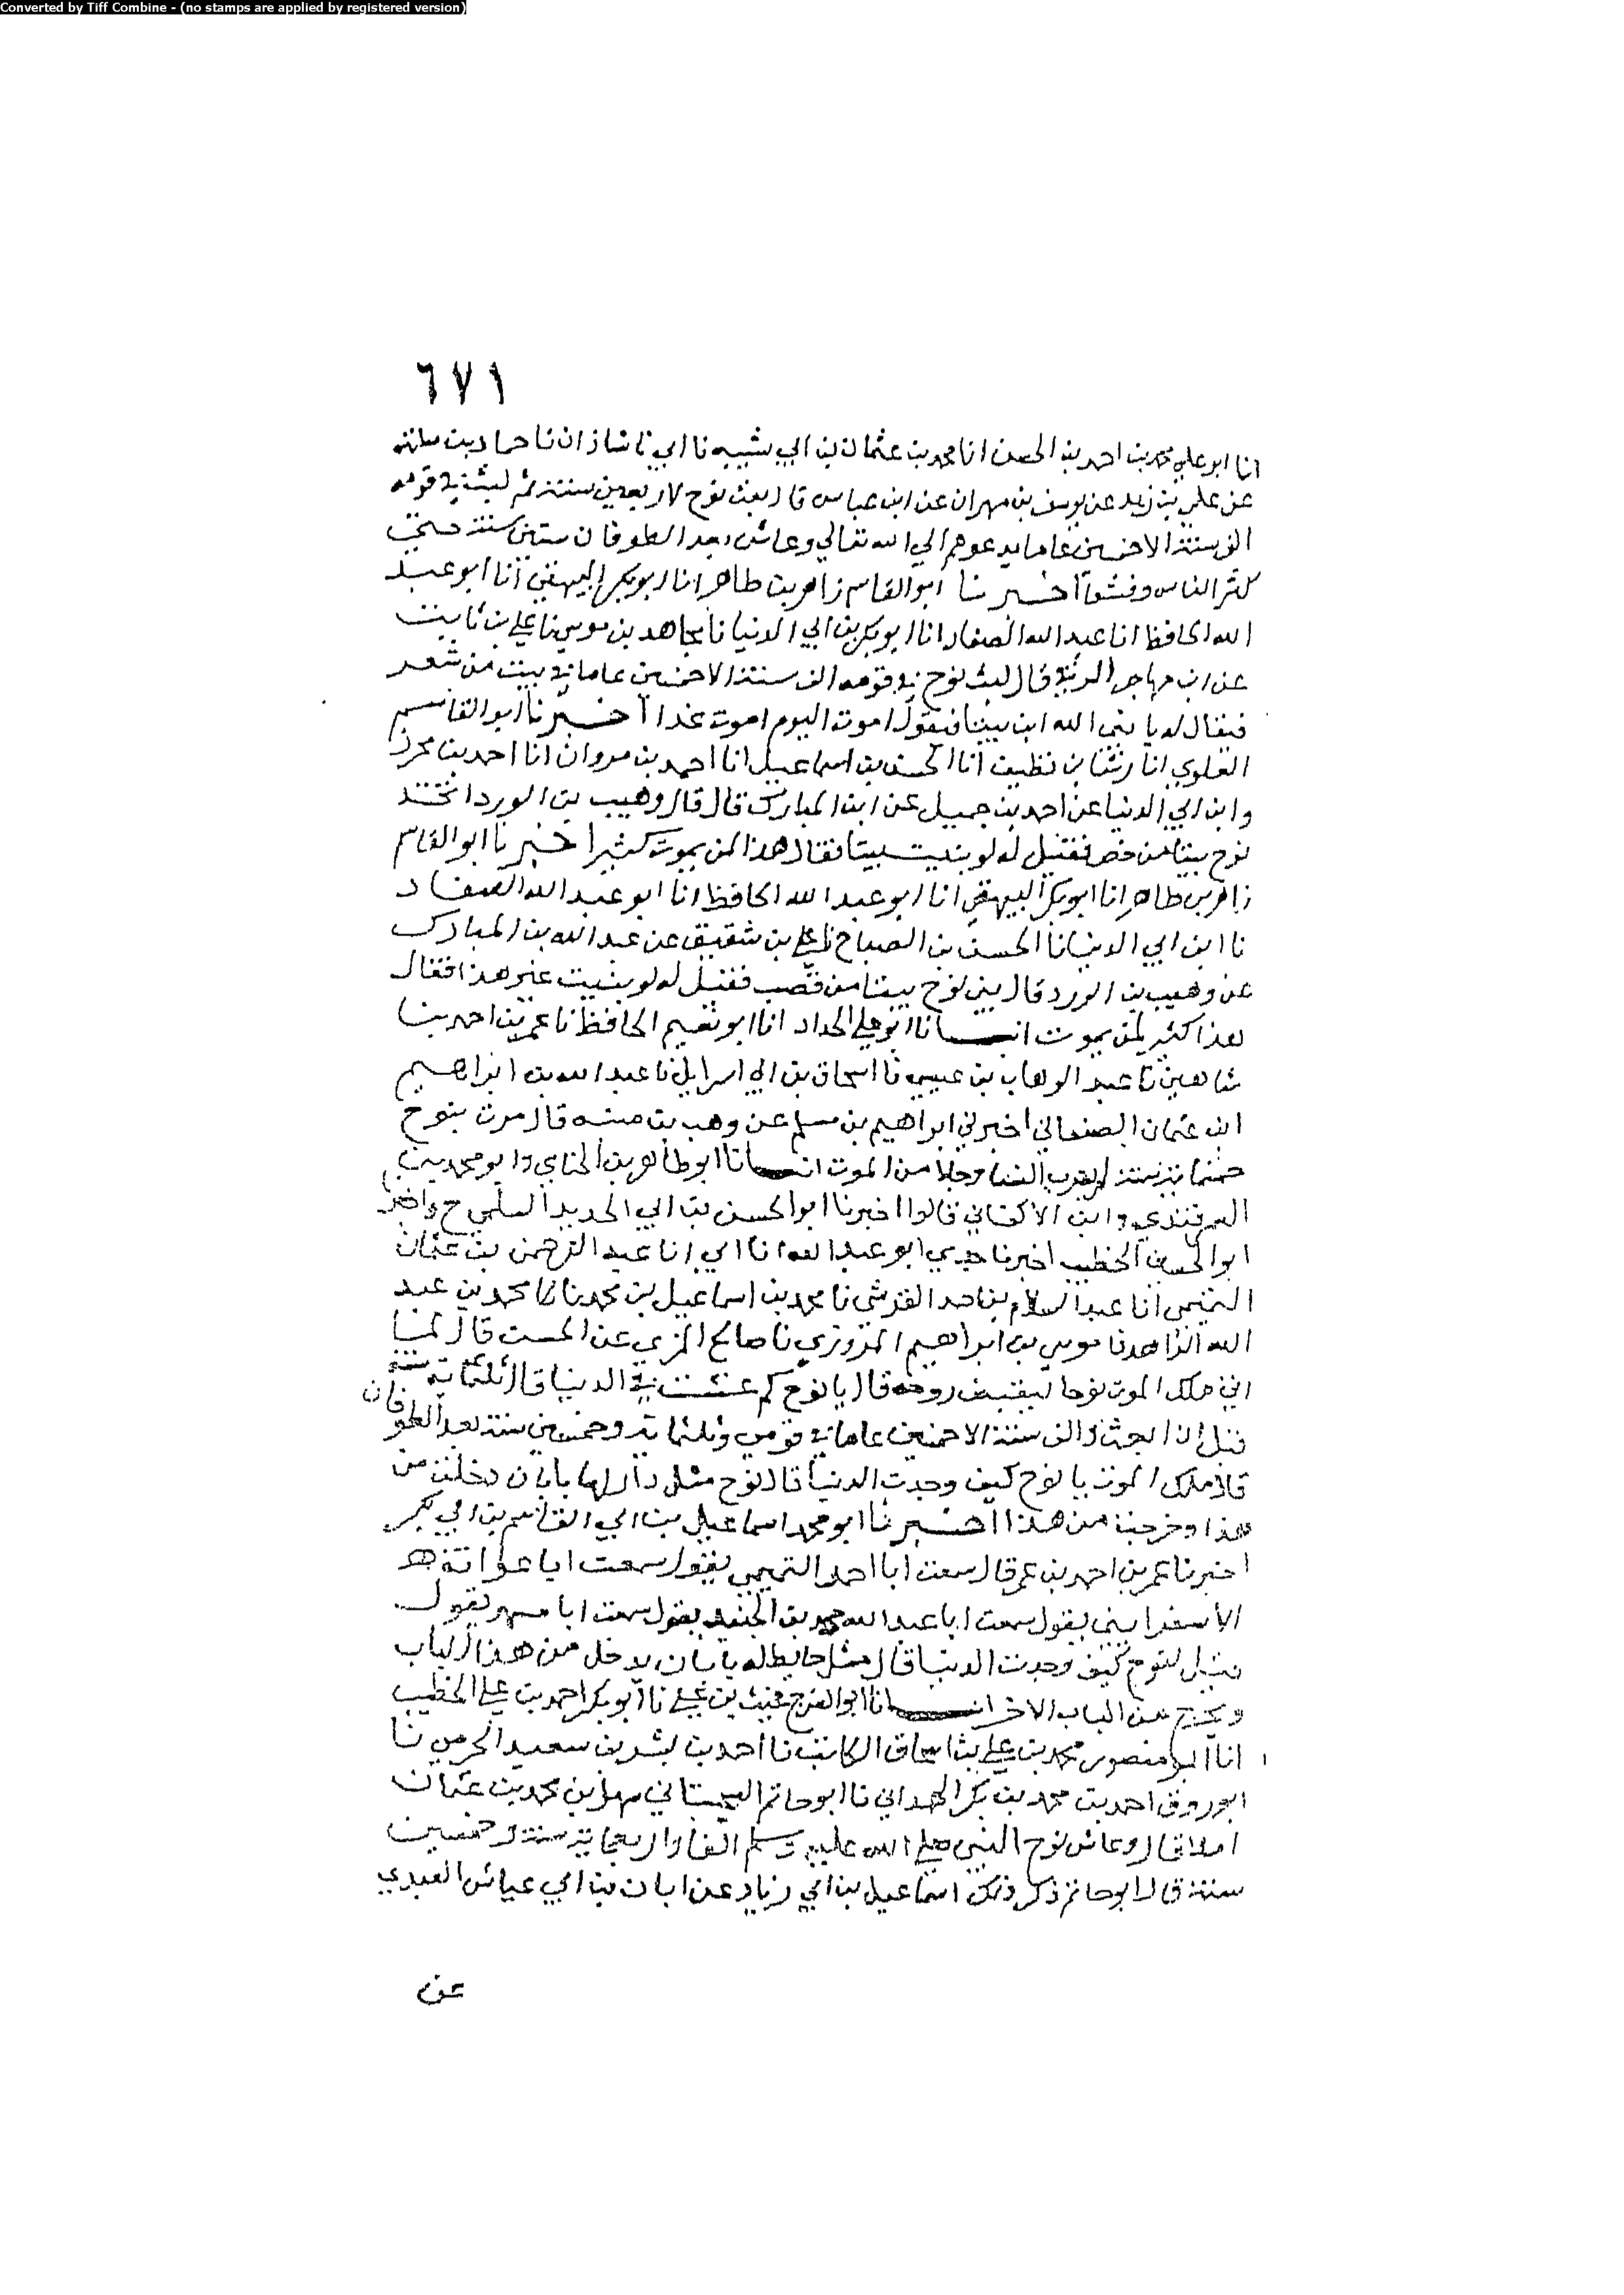 Converted by Tiff Combine - (no stamps are applied by registered version)
٦٧١
انا ابو علي محمد بن احمد بن الحسن انا محمد بن عثمان بن ابي شيبه نا ابي نا شاذان نا حماد بن سلمة
عن علي بن زيد عن يوسف بن مهران عن ابن عباس قال بعث نوح لاربعين سنة ثم لبث في قومه
الف سنة الا خمسين عاما يدعوهم الي الله تعالي وعاش بعد الطوفان ستين سنة حتي
كثر الناس وفشوا اخبرنا ابو القاسم زاهر بن طاهر انا ابو بكر البيهقي انا ابو عبد
الله الحافظ انا عبد الله الصفار انا ابو بكر بن ابي الدنيا نا مجاهد بن موسي نا علي بن ثابت
عن ابي مهاجر الرقي قال لبث نوح في قومه الف سنة الا خمسين عاما في بيت من شعر
فيقال له يا نبي الله ابن بيتا فيقول اموت اليوم اموت غدا اخبرنا ابو القاسم
العلوي انا رشا بن نظيف انا الحسن بن اسماعيل انا احمد بن مروان انا احمد بن محرز
وابن ابي الدنيا عن احمد بن جميل عن ابن المبارك قال قال وهيب بن الورد اتخذ
نوح بيتا من خص فقيل له لو بنيت بيتا فقال هذا لمن يموت كثير اخبرنا ابو القاسم
زاهر بن طاهر انا ابو بكر البيهقي انا ابو عبد الله الحافظ انا ابو عبد الله الصفار
نا ابن ابي الدنيا نا الحسن بن الصباح نا علي بن شقيق عن عبد الله بن المبارك
عن وهيب بن الورد قال بني نوح بيتا من قصب فقيل له لو بنيت غير هذا فقال
هذا كثير لمن يموت انبانا ابو علي الحداد انا ابو نعيم الحافظ نا عمر بن احمد بن
شاهين نا عبد الوهاب بن عيسي نا اسحاق بن ابي اسرايل نا عبد الله بن ابراهيم
ابن عثمان الصنعاني اخبرني ابراهيم بن مسلم عن وهب بن منبه قال مرت بنوح
خمسماية سنة لم يقرب النسا وجلا من الموت انبانا ابو طاهر بن الحنايي وابو محمد بن
السمرقندي وابن الاكفاني قالوا اخبرنا ابو الحسن بن ابي الحديد السلمي ح واخبرنا
ابو الحسين الخطيب اخبرنا جدي ابو عبد الله انا ابي انا عبد الرحمن بن عثمان
التميمي انا عبد السلام بن احمد القرشي نا محمد بن اسماعيل بن محمد نا محمد بن عبد
الله الزاهد نا موسي بن ابراهيم المروزي نا صالح المري عن الحسن قال لما
اتي ملك الموت نوحا ليقبض روحه قال يا نوح كم عشت في الدنيا قال ثلثماية سنة
قبل ان ابعث والف سنة الا خمسين عاما في قومي وثلثماية وخمسين سنة بعد الطوفان
قال ملك الموت يا نوح كيف وجدت الدنيا قال نوح مثل دار لها بابان دخلت من
هذا وخرجت من هذا اخبرنا ابو محمد اسماعيل بن ابي القاسم بن ابي بكر
اخبرنا عمر بن احمد بن عمر قال سمعت ابا احمد التميمي يقول سمعت ابا عوانة هو
الاسفرايني يقول سمعت ابا عبد الله محمد بن الجنيد يقول سمعت ابا مسهر يقول
قيل لنوح كيف وجدت الدنيا قال مثل حايط له بابان يدخل من هذا الباب
ويخرج من الباب الاخر انبانا ابو الفرج غيث بن علي نا ابو بكر احمد بن علي الخطيب
انا ابو منصور محمد بن علي بن اسحاق الكاتب نا احمد بن بشر بن سعيد الخرقي نا
ابو روق احمد بن محمد بن بكر الهمداني نا ابو حاتم السجستاني سهل بن محمد بن عثمان
املا قال وعاش نوح النبي صلي الله عليه وسلم الفا واربعماية سنة وخمسين
سنة قال ابو حاتم ذكر ذلك اسماعيل بن ابي زياد عن ابان بن ابي عياش العبدي
عن